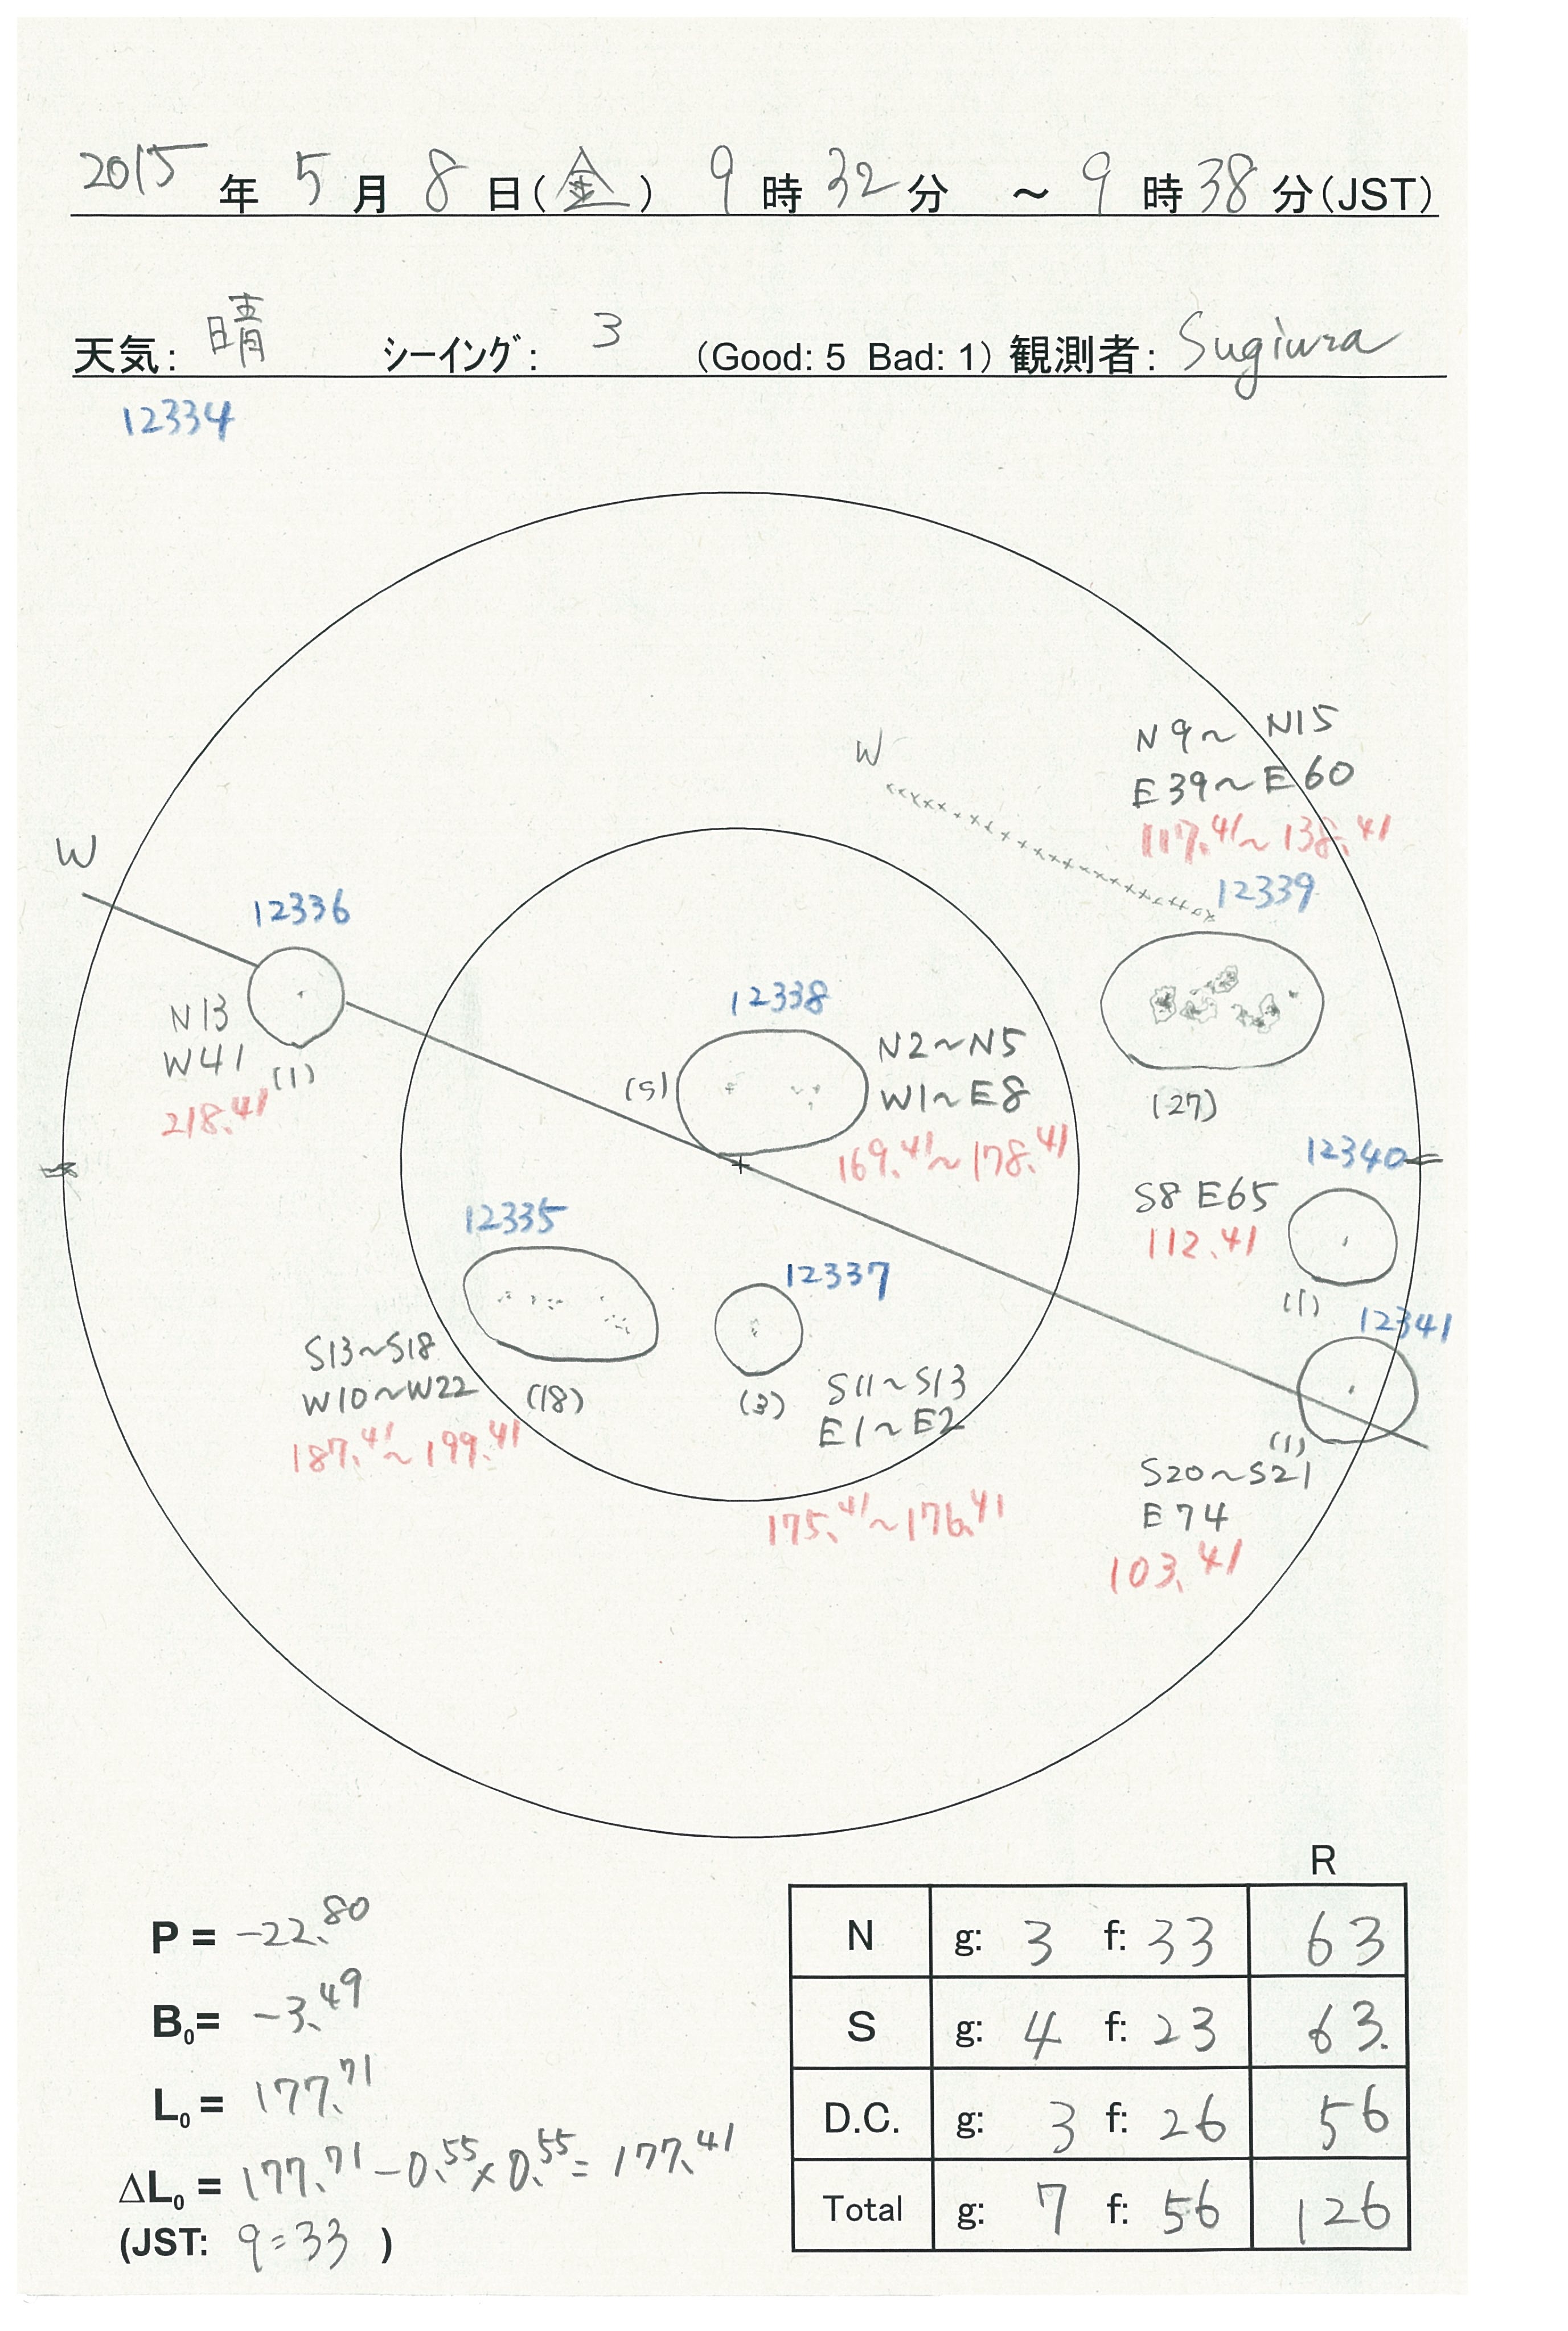 2015 年 5 月 8 日(金) 9 時 32 分 ～ 9 時 38 分(JST)
天気: 晴 シーイング: 3 (Good: 5 Bad: 1) 観測者: Sugiura
12334
N9~N15
W
E39~E60
117.41~138.41
W
12339
12336
12338
N13
N2~N5
W41
(1)
(5)
W1~E8
(27)
218.41
169.41~178.41
12340
S8 E65
12335
112.41
12337
(1)
12341
S13~S18
W10~W22
(18)
(3)
S11~S13
E1~E2
187.41~199.41
(1)
S20~S21
175.41~176.41
E74
103.41
R
P = -22.80
N g: 3 f: 33 63
B0= -3.49
S g: 4 f: 23 63.
L0= 177.71
D.C. g: 3 f: 26 56
ΔL0= 177.71-0.55×0.55=177.41
Total g: 7 f: 56 126
(JST: 9:33 )